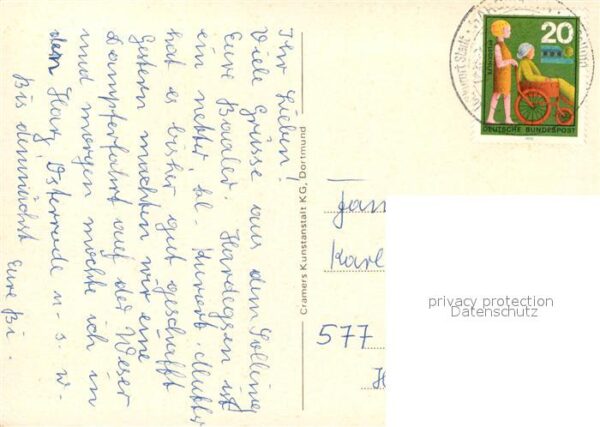 Ihr Lieben!
Viele Grüsse aus dem Solling
Eure Badler. Hardegsen ist
ein netter, kl. Kurort. Mutter
hat es bisher gut geschafft
Gestern machten wir eine
Dampferfahrt auf der Weser
und morgen möchte ich in
den Harz, Osterrode u. s. w.
Bis demnächst Eure Bi.
Cramers Kunstanstalt KG, Dortmund
20
DEUTSCHE BUNDESPOST
Fam
Karl
577
H
privacy protection
Datenschutz